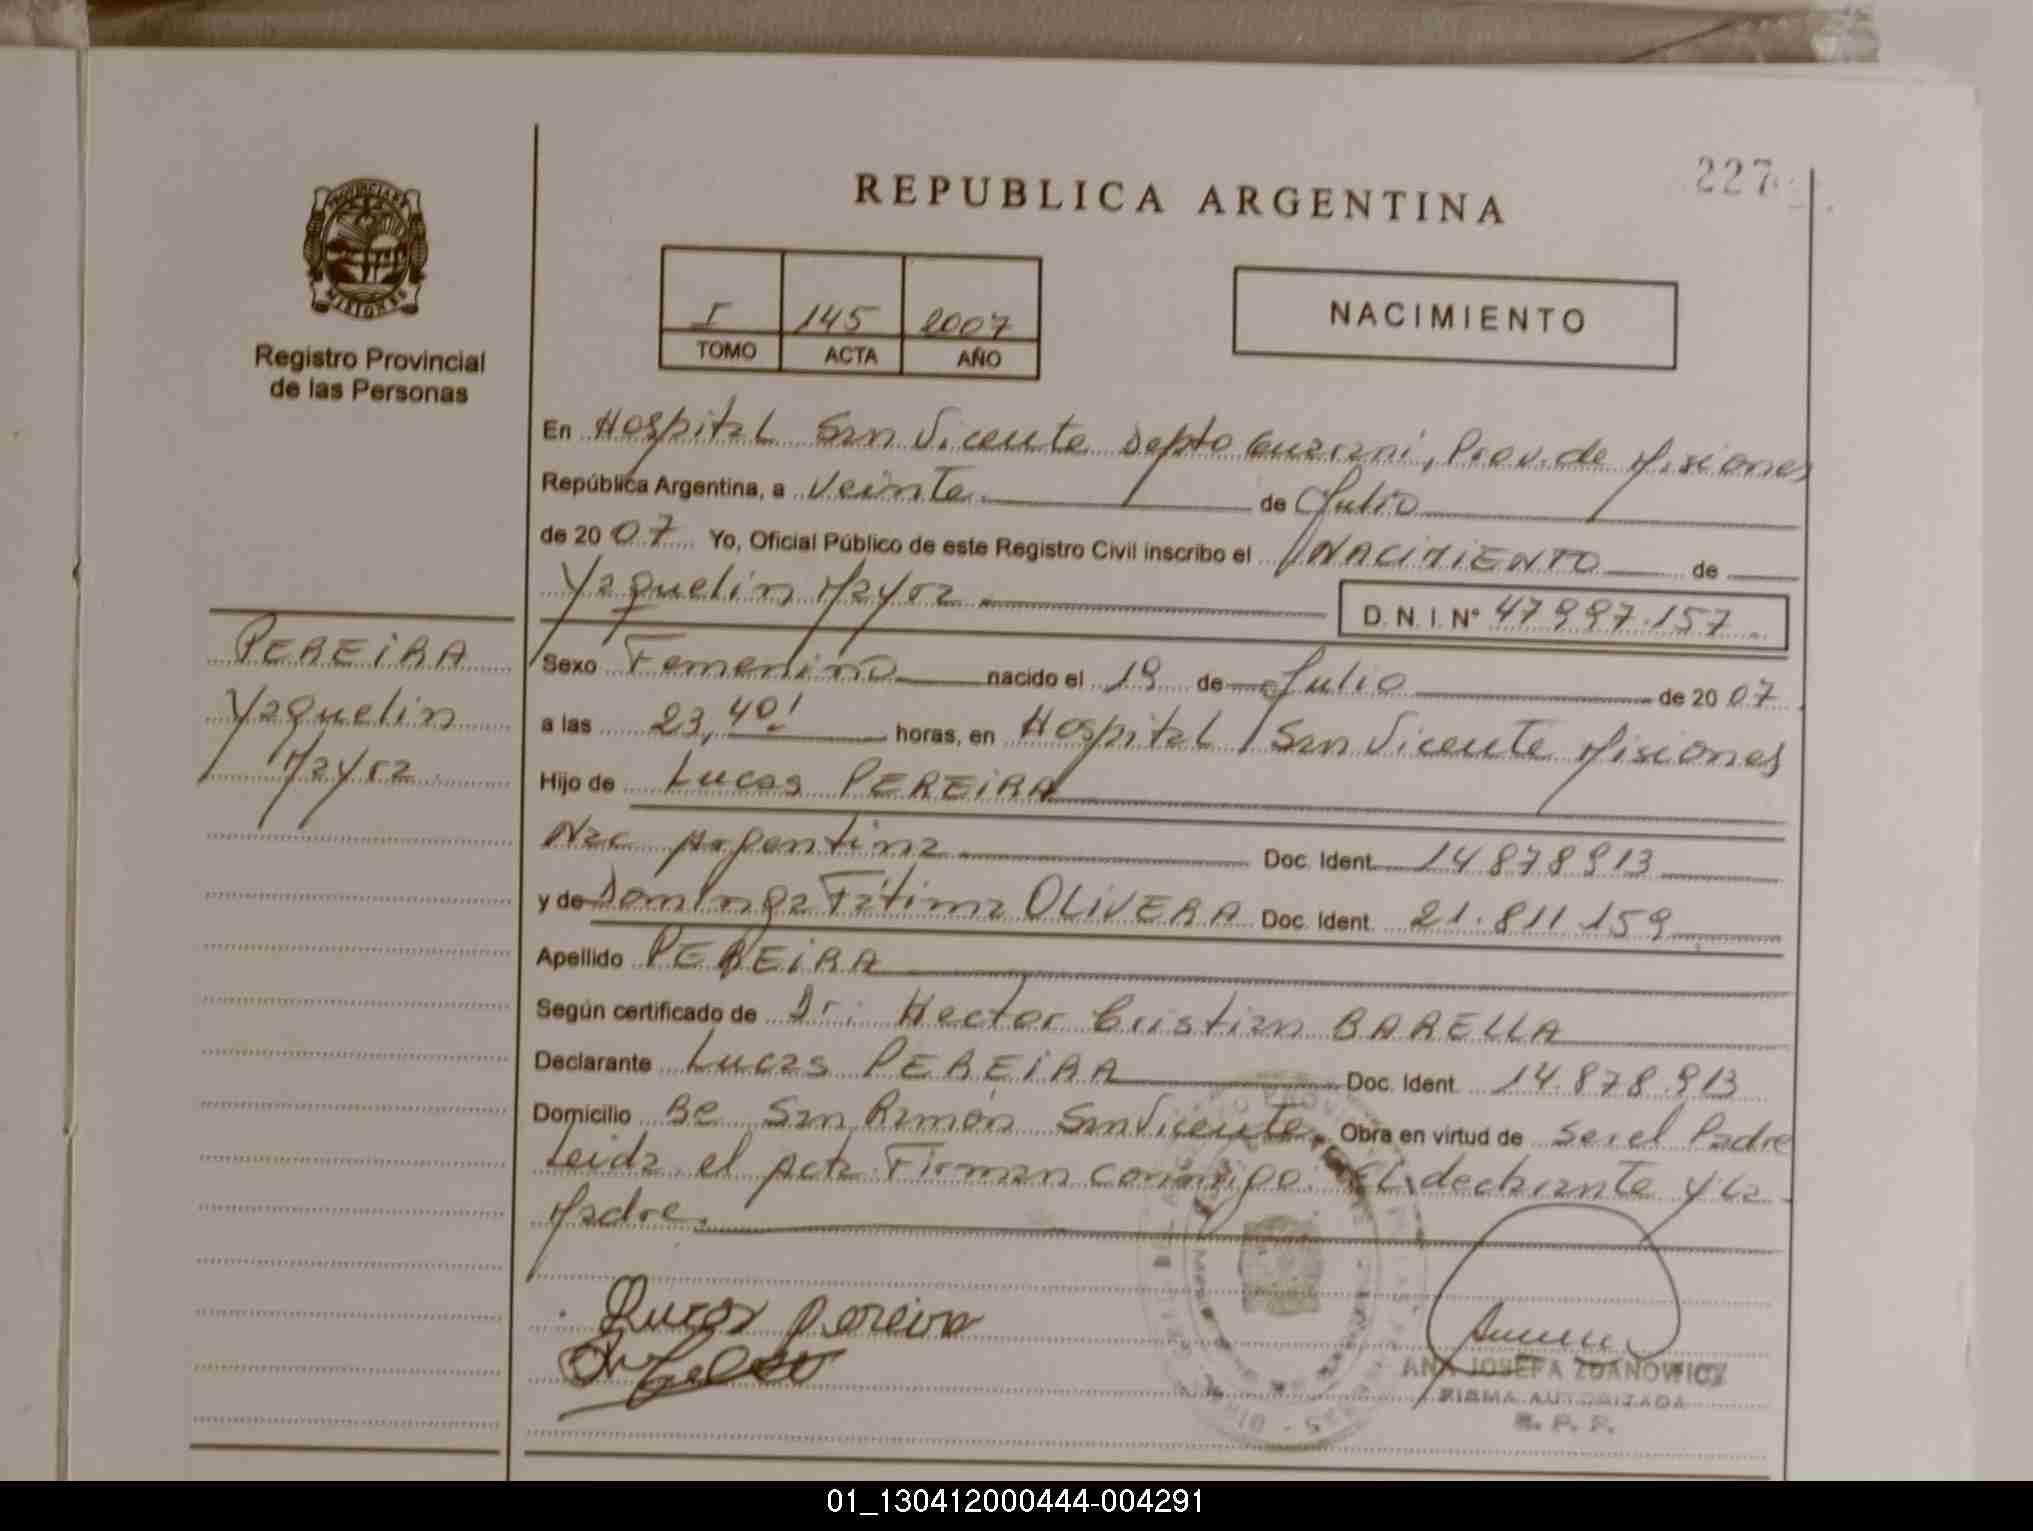 227
REPUBLICA ARGENTINA
PROVINCIA DE
MISIONES
Registro Provincial
de las Personas
I 145 2007
TOMO ACTA AÑO
NACIMIENTO
En Hospital San Vicente Depto Guarani, Prov. de Misiones
República Argentina, a Veinte de Julio
de 2007 Yo, Oficial Público de este Registro Civil inscribo el NACIMIENTO de
Yaquelin Mayra D. N. I. N° 47997.157
PEREIRA
Yaquelin
Mayra
Sexo Femenino nacido el 19 de Julio de 2007
a las 23,40! horas, en Hospital San Vicente Misiones
Hijo de Lucas PEREIRA
Nac Argentina Doc. Ident. 14878913
y de Dominga Fátima OLIVERA Doc. Ident. 21.811.159
Apellido PEREIRA
Según certificado de Dr: Hector Cristian BARELLA
Declarante Lucas PEREIRA Doc. Ident. 14.878.913
Domicilio Be San Ramón San Vicente. Obra en virtud de ser el Padre
Leida el Acta Firman conmigo El declarante y la
Madre.
Lucas Pereira
ANA JOSEFA ZDANOWICZ
FIRMA AUTORIZADA
R. P. P.
01_130412000444-004291